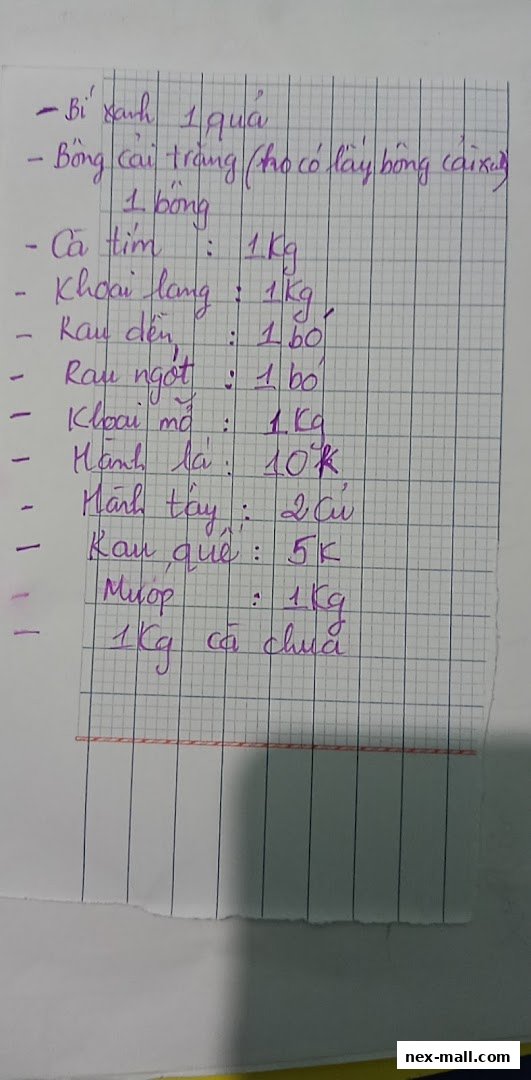 - Bí xanh 1 quả
- Bông cải trắng (ho có lấy bông cải xanh)
1 bông
- Cà tím : 1Kg
- Khoai lang : 1Kg
- Rau dền : 1 bó
- Rau ngót : 1 bó
- Khoai mỡ : 1Kg
- Hành lá : 10K
- Hành tây : 2 Củ
- Rau quế : 5K
- Mướp : 1Kg
- 1Kg cà chua
nex-mall.com